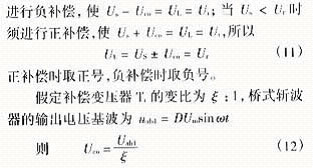 进行负补偿,使 Uₛ − U_co = U_L = Uᵣ; 当 Uₛ < Uᵣ 时
须进行正补偿,使 Uₛ + U_co = U_L = Uᵣ,所以
U_L = U_S ± U_co = Uᵣ (11)
正补偿时取正号,负补偿时取负号。
假定补偿变压器 Tᵣ 的变比为 ξ : 1,桥式斩波
器的输出电压基波为 u_ab1 = DUₘsin ωt
则 U_co = U_ab1/ξ (12)